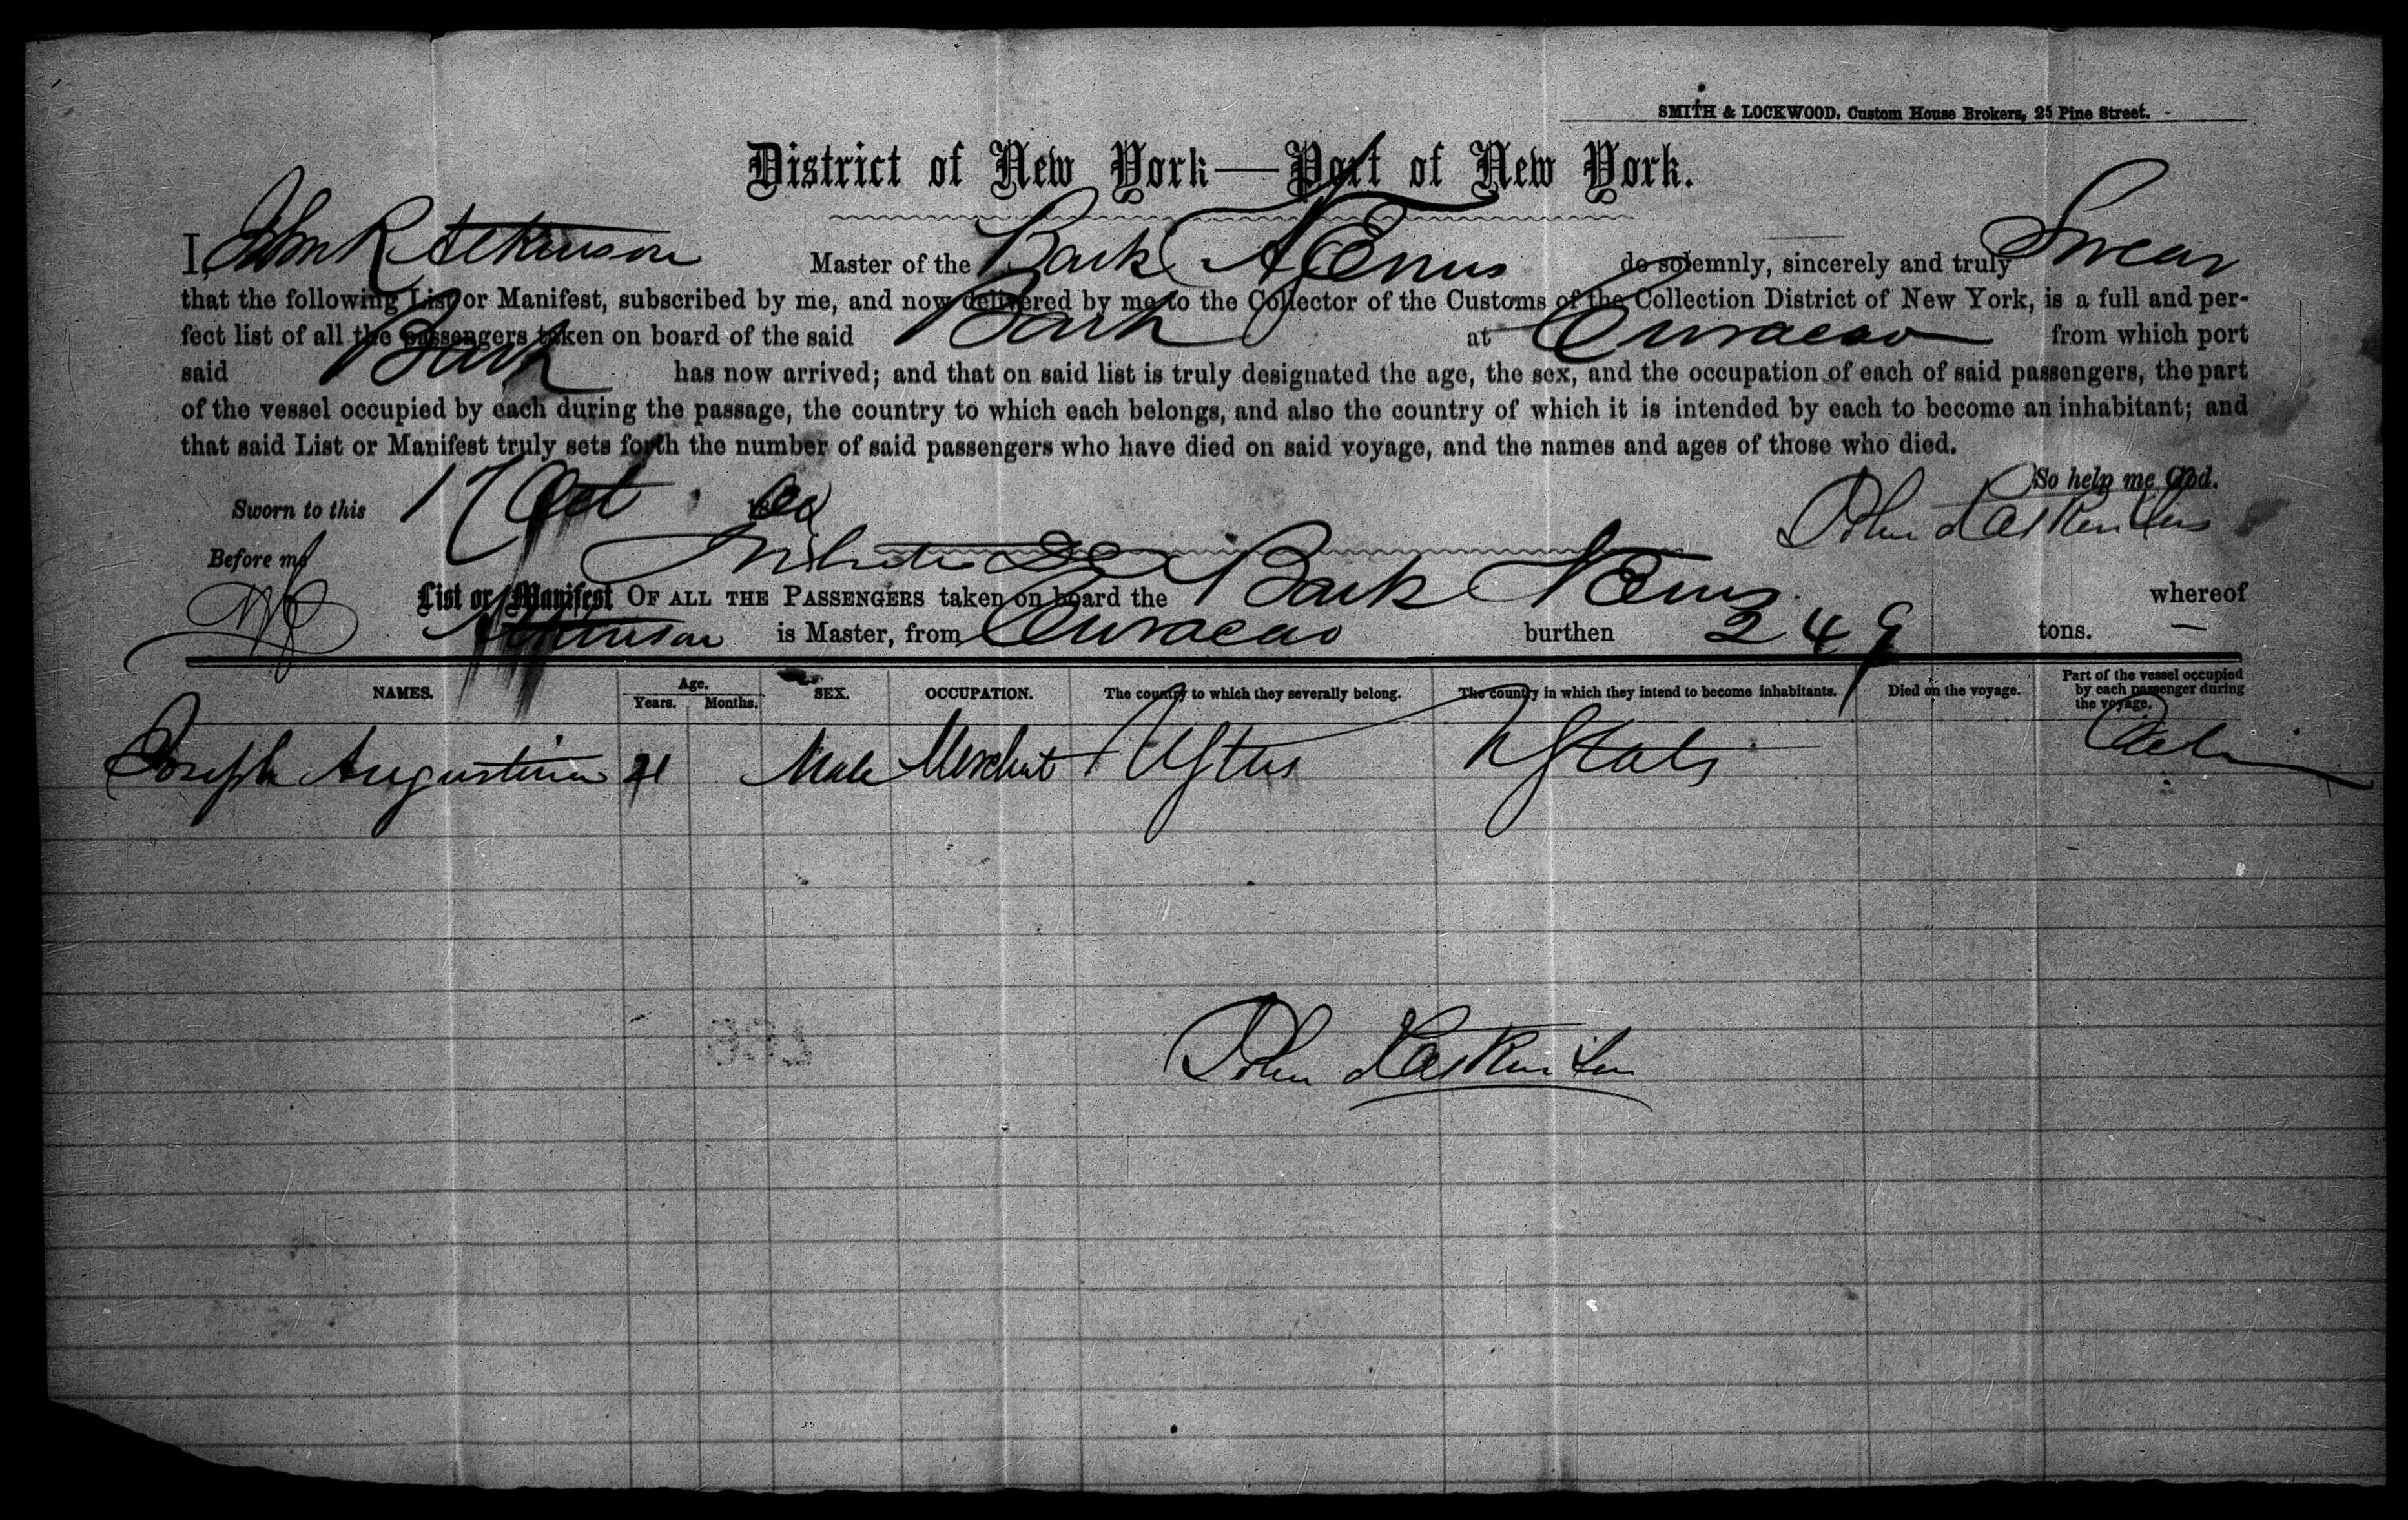 SMITH & LOCKWOOD, Custom House Brokers, 25 Pine Street.
District of New York—Port of New York.
I, John R Atkinson Master of the Bark do solemnly, sincerely and truly Swear
that the following List or Manifest, subscribed by me, and now delivered by me to the Collector of the Customs of the Collection District of New York, is a full and per-
fect list of all the passengers taken on board of the said Bark at Curacao from which port
said Bark has now arrived; and that on said list is truly designated the age, the sex, and the occupation of each of said passengers, the part
of the vessel occupied by each during the passage, the country to which each belongs, and also the country of which it is intended by each to become an inhabitant; and
that said List or Manifest truly sets forth the number of said passengers who have died on said voyage, and the names and ages of those who died.
So help me God.
Sworn to this 17 Oct
Before me
List or Manifest OF ALL THE PASSENGERS taken on board the Bark whereof
Atkinson is Master, from Curacao burthen 249 tons.
NAMES. Age. Years. Months. SEX. OCCUPATION. The country to which they severally belong. The country in which they intend to become inhabitants. Died on the voyage. Part of the vessel occupied by each passenger during the voyage.
Joseph Augustine Male
John